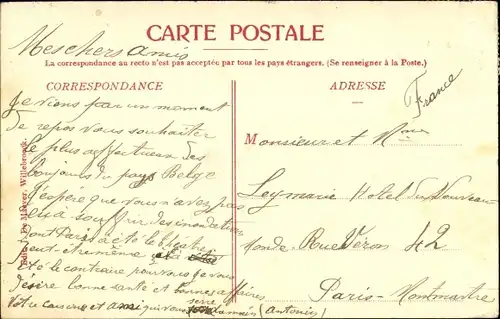 CARTE POSTALE
Mes chers amis
La correspondance au recto n'est pas acceptée par tous les pays étrangers. (Se renseigner à la Poste.)
CORRESPONDANCE
ADRESSE
France
Je viens par un moment
de repos vous souhaiter
le plus affectueux des
bonjours du pays Belge
J'espère que vous n'avez pas
eu à souffrir des inondations
dont Paris a été le
peut-être même
été le contraire pour vous je vous
désire bonne santé et bonnes affaires
Votre cousin et ami qui vous
serre la main (Antonin)
Monsieur et Mme
Leymarie Hotel du Nouveau
Monde. Rue Veron 42
Paris-Montmartre
Edit. De Maeyer, Willebroeck.